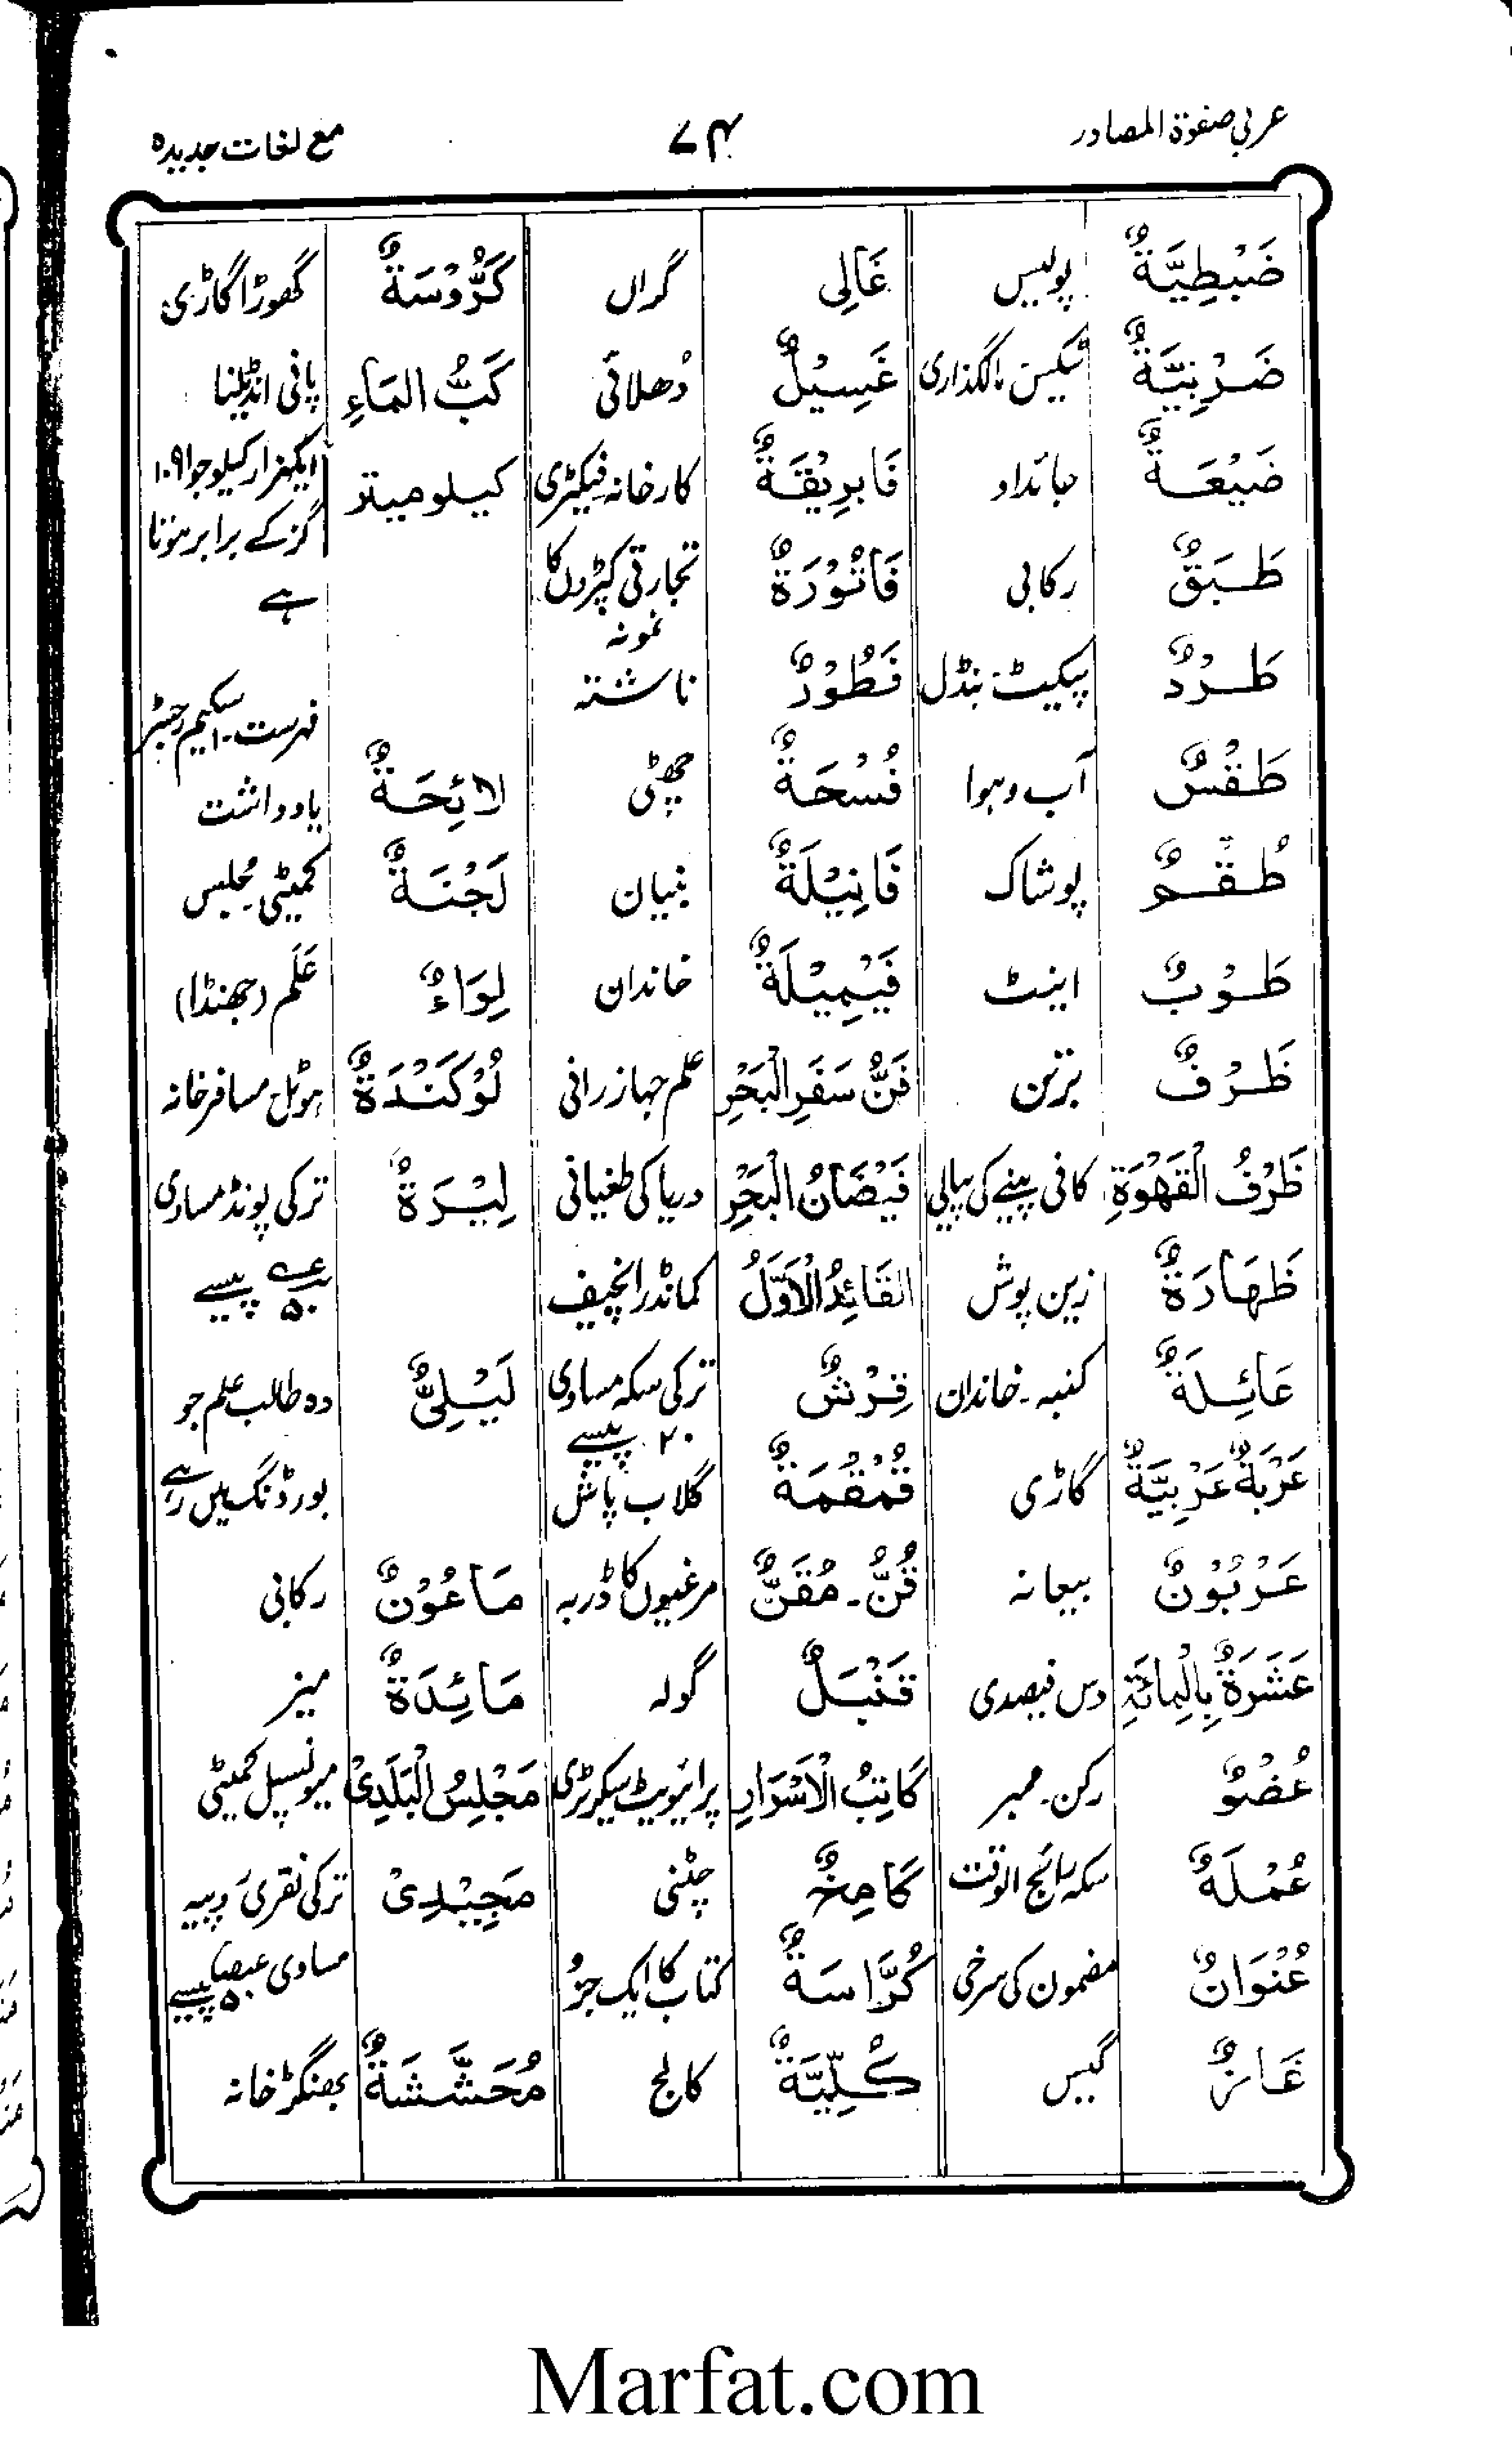 عربی صفوۃ المصادر ۷۴ مع لغات جدیدہ
ضَبْطِيَّةٌ پولیس غَالِی گراں كَرُّوْسَةٌ گھوڑا گاڑی
ضَرْبِيَّةٌ ٹیکس مالگذاری غَسِيْلٌ دُھلائی كَبُّ المَاءِ پانی انڈیلنا
ضَيْعَةٌ جائداد فَابرِيْقَةٌ کارخانہ فیکٹری کیلومیتر ایکہزار کیلو جوا۱۰۹
گز کے برابر ہوتا
طَبَقٌ رکابی فَاتُوْرَةٌ تجارتی کپڑوں کا ہے
نمونہ
طَرْدٌ پیکیٹ۔ بنڈل فَطُوْرٌ ناشتہ
فہرست۔ سکیم رجسٹر
طَقْسٌ آب و ہوا فُسْحَةٌ چھٹی لائِحَةٌ یادداشت
طُقْمٌ پوشاک فَانِيْلَةٌ بنیان لَجْنَةٌ کمیٹی مجلس
طَوْبٌ اینٹ فَيْمِيْلَةٌ خاندان لِوَاءٌ عَلَم (جھنڈا)
ظَرْفٌ برتن فَنُّ سَفَرِ الْبَحْرِ علم جہاز رانی لُوْكَنْدَةٌ ہوٹل مسافر خانہ
ظَرْفُ الْقَهْوَةِ کافی پینے کی پیالی فَيْضَانُ الْبَحْرِ دریا کی طغیانی لِيْرَةٌ ترکی پونڈ مساوی
ظَهَارَةٌ زین پوش القَائِدُ الْاَوَّلُ کمانڈر انچیف ۵۰ پیسے
عَائِلَةٌ کنبہ۔ خاندان قِرْشٌ ترکی سکہ مساوی لَيْلِيٌّ وہ طالب علم جو
۲۰ پیسے
عَرْبَةٌ عَرْبِيَّةٌ گاڑی قُمْقُمَةٌ گلاب پاش بورڈنگ میں رہے
عَرْبُوْنٌ بیعانہ قُنٌّ۔ مُقَنٌّ مرغیوں کا ڈربہ مَاعُوْنٌ رکابی
عَشَرَةٌ بِالْمِائَةِ دس فیصدی قَنْبَلٌ گولہ مَائِدَةٌ میز
عُضْوٌ رکن۔ ممبر كَاتِبُ الْاَسْرَارِ پرائیویٹ سیکرٹری مَجْلِسُ الْبَلَدِیْ میونسپل کمیٹی
عُمْلَةٌ سکہ رائج الوقت كَامِخٌ چٹنی مَجِيْدِیْ ترکی نقرئی روپیہ
عُنْوَانٌ مضمون کی سرخی كُرَّاسَةٌ کتاب کا ایک جز مساوی ۵۰ پیسے
غَازٌ گیس كُلِّيَّةٌ کالج مُحَشَّشَةٌ بھنگڑ خانہ
Marfat.com